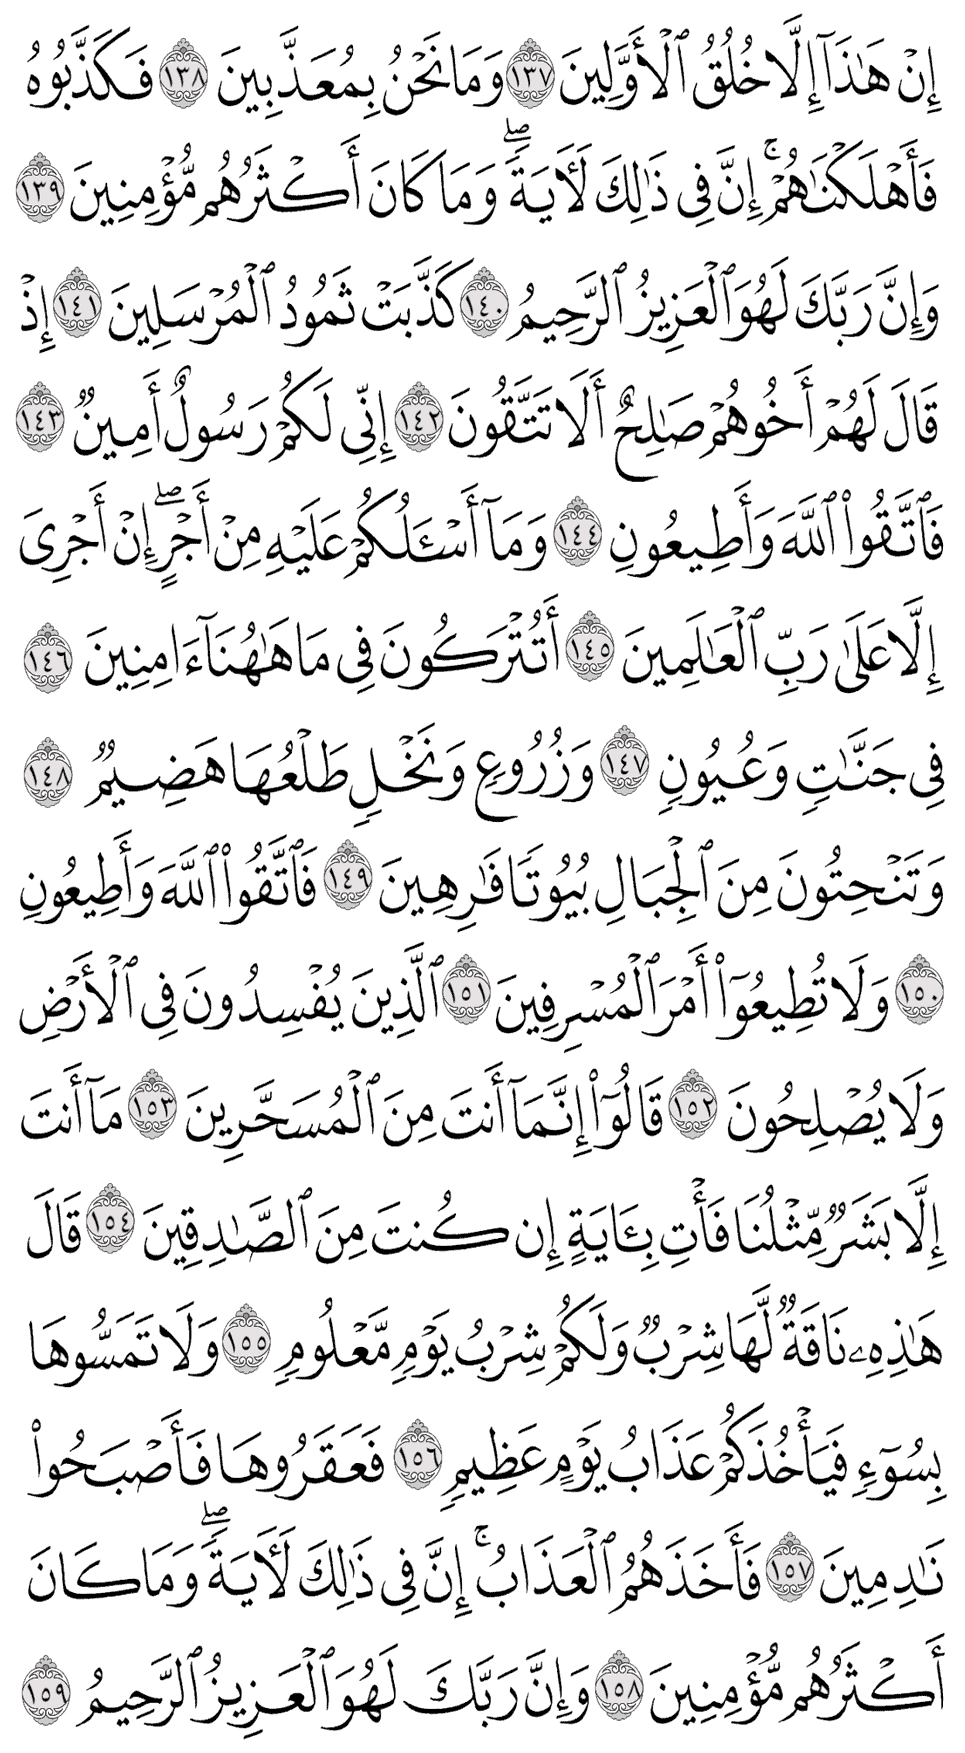 إِنۡ هَٰذَآ إِلَّا خُلُقُ ٱلۡأَوَّلِينَ ١٣٧ وَمَا نَحۡنُ بِمُعَذَّبِينَ ١٣٨ فَكَذَّبُوهُ
فَأَهۡلَكۡنَٰهُمۡۚ إِنَّ فِي ذَٰلِكَ لَأٓيَةٗۖ وَمَا كَانَ أَكۡثَرُهُم مُّؤۡمِنِينَ ١٣٩
وَإِنَّ رَبَّكَ لَهُوَ ٱلۡعَزِيزُ ٱلرَّحِيمُ ١٤٠ كَذَّبَتۡ ثَمُودُ ٱلۡمُرۡسَلِينَ ١٤١ إِذۡ
قَالَ لَهُمۡ أَخُوهُمۡ صَٰلِحٌ أَلَا تَتَّقُونَ ١٤٢ إِنِّي لَكُمۡ رَسُولٌ أَمِينٞ ١٤٣
فَٱتَّقُواْ ٱللَّهَ وَأَطِيعُونِ ١٤٤ وَمَآ أَسۡـَٔلُكُمۡ عَلَيۡهِ مِنۡ أَجۡرٍۖ إِنۡ أَجۡرِيَ
إِلَّا عَلَىٰ رَبِّ ٱلۡعَٰلَمِينَ ١٤٥ أَتُتۡرَكُونَ فِي مَا هَٰهُنَآ ءَامِنِينَ ١٤٦
فِي جَنَّٰتٖ وَعُيُونٖ ١٤٧ وَزُرُوعٖ وَنَخۡلٖ طَلۡعُهَا هَضِيمٞ ١٤٨
وَتَنۡحِتُونَ مِنَ ٱلۡجِبَالِ بُيُوتٗا فَٰرِهِينَ ١٤٩ فَٱتَّقُواْ ٱللَّهَ وَأَطِيعُونِ
١٥٠ وَلَا تُطِيعُوٓاْ أَمۡرَ ٱلۡمُسۡرِفِينَ ١٥١ ٱلَّذِينَ يُفۡسِدُونَ فِي ٱلۡأَرۡضِ
وَلَا يُصۡلِحُونَ ١٥٢ قَالُوٓاْ إِنَّمَآ أَنتَ مِنَ ٱلۡمُسَحَّرِينَ ١٥٣ مَآ أَنتَ
إِلَّا بَشَرٞ مِّثۡلُنَا فَأۡتِ بِـَٔايَةٍ إِن كُنتَ مِنَ ٱلصَّٰدِقِينَ ١٥٤ قَالَ
هَٰذِهِۦ نَاقَةٞ لَّهَا شِرۡبٞ وَلَكُمۡ شِرۡبُ يَوۡمٖ مَّعۡلُومٖ ١٥٥ وَلَا تَمَسُّوهَا
بِسُوٓءٖ فَيَأۡخُذَكُمۡ عَذَابُ يَوۡمٍ عَظِيمٖ ١٥٦ فَعَقَرُوهَا فَأَصۡبَحُواْ
نَٰدِمِينَ ١٥٧ فَأَخَذَهُمُ ٱلۡعَذَابُۚ إِنَّ فِي ذَٰلِكَ لَأٓيَةٗۖ وَمَا كَانَ
أَكۡثَرُهُم مُّؤۡمِنِينَ ١٥٨ وَإِنَّ رَبَّكَ لَهُوَ ٱلۡعَزِيزُ ٱلرَّحِيمُ ١٥٩